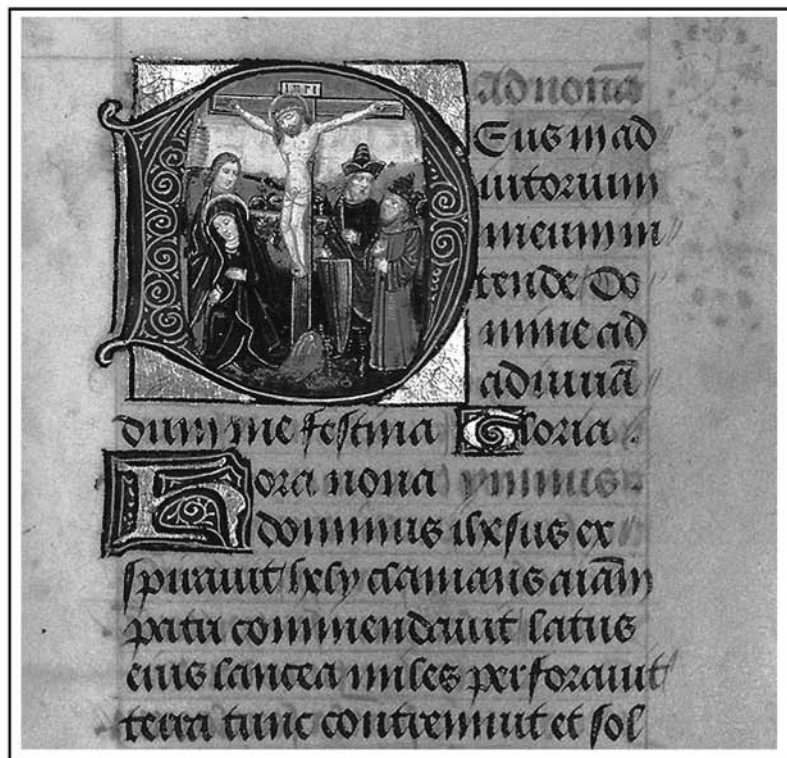 INRI
ad nonā
Deus in ad
iutorium
meum in
tende Do
mine ad
adiuuā
dum me festina Gloria.
Hora nona ymnus
dominus ihesus ex
spirauit hely clamans aīam
patri commendauit latus
eius lancea miles perforauit
terra tunc contremuit et sol